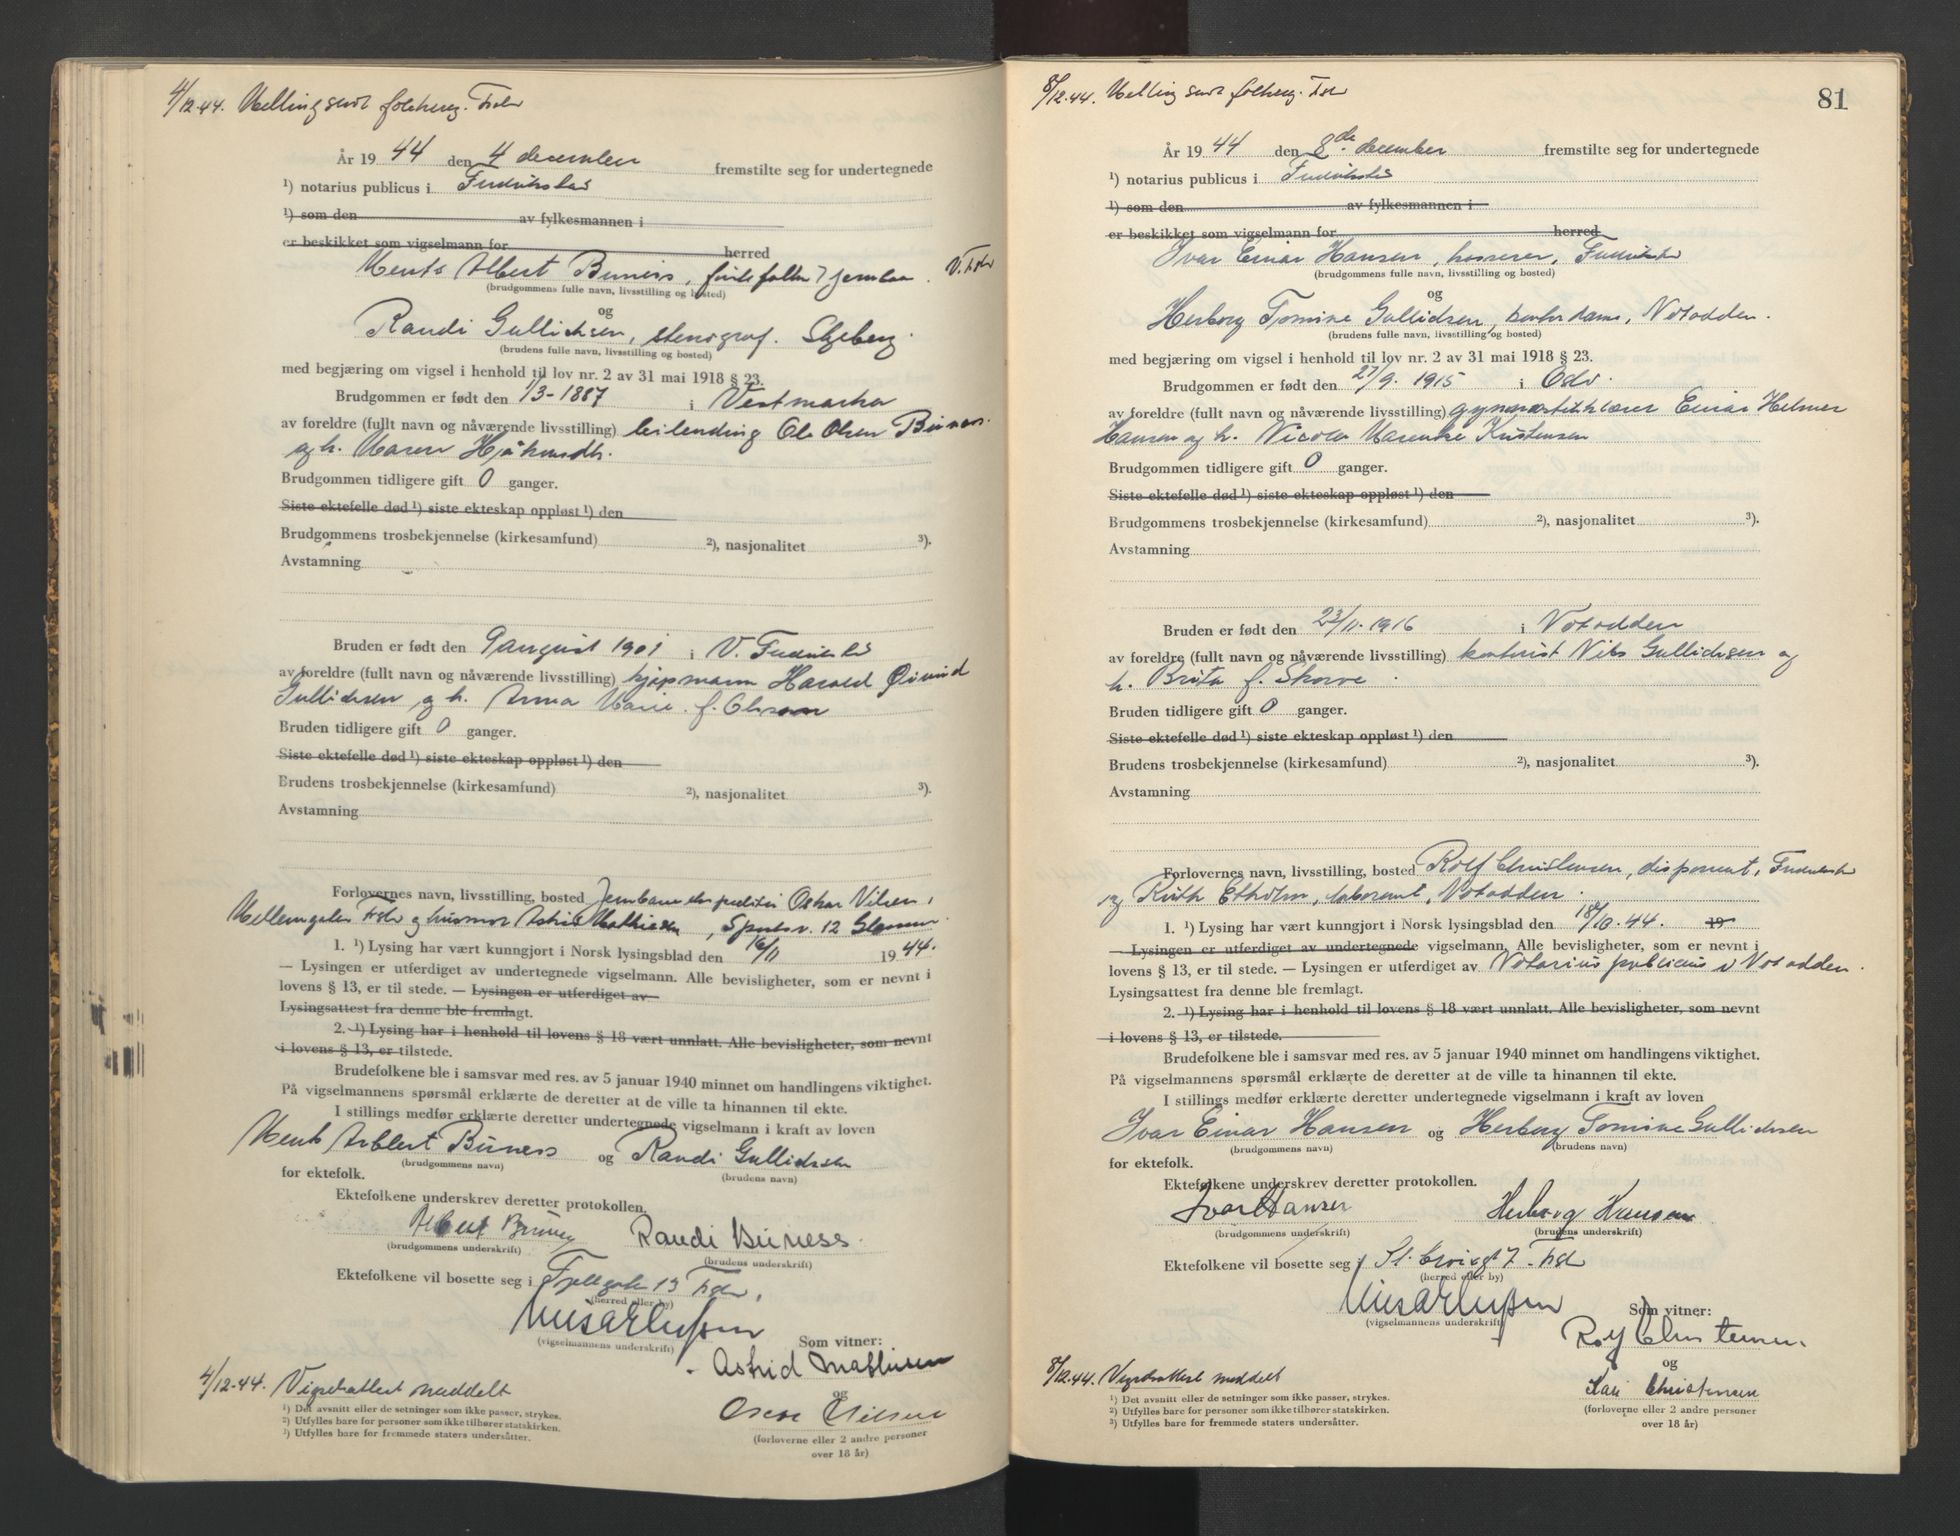 4/12.44. Melling sendt folkereg. Fstr
År 19 44 den 4 december fremstilte seg for undertegnede
¹) notarius publicus i Fredrikstad
¹) som den av fylkesmannen i
er beskikket som vigselmann for herred
Albert Buness, V. Fstr
(brudgommens fulle navn, livsstilling og bosted)
og
Randi Gullichsen, stenograf. Skjeberg.
(brudens fulle navn, livsstilling og bosted)
med begjæring om vigsel i henhold til lov nr. 2 av 31 mai 1918 § 23.
Brudgommen er født den 1/3-1887 i Vestmarka
av foreldre (fullt navn og nåværende livsstilling) leilending Ole Olsen Buness
og h. Maren
Brudgommen tidligere gift 0 ganger.
Siste ektefelle død ¹) siste ekteskap oppløst ¹) den
Brudgommens trosbekjennelse (kirkesamfund) ²), nasjonalitet ³).
Avstamning
Bruden er født den 9 august 1901 i V. Fredrikstad
av foreldre (fullt navn og nåværende livsstilling) kjøpmann Harald Øivind
Gullichsen og h. Anna Marie f. Olsson
Bruden tidligere gift 0 ganger.
Siste ektefelle død ¹) siste ekteskap oppløst ¹) den
Brudens trosbekjennelse (kirkesamfund) ²), nasjonalitet ³).
Avstamning
Forlovernes navn, livsstilling, bosted Jernbaneekspeditør Oskar Nilsen,
Mellemgaten Fstr og husmor Astrid Mathisen, 12 Glemmen
1. ¹) Lysing har vært kunngjort i Norsk lysingsblad den 16/11 19 44.
— Lysingen er utferdiget av undertegnede vigselmann. Alle bevisligheter, som er nevnt i
lovens § 13, er til stede. — Lysingen er utferdiget av
Lysingsattest fra denne ble fremlagt.
2. ¹) Lysing har i henhold til lovens § 18 vært unnlatt. Alle bevisligheter, som nevnt
i lovens § 13, er tilstede.
Brudefolkene ble i samsvar med res. av 5 januar 1940 minnet om handlingens viktighet.
På vigselmannens spørsmål erklærte de deretter at de ville ta hinannen til ekte.
I stillings medfør erklærte deretter undertegnede vigselmann i kraft av loven
Albert Buness og Randi Gullichsen
(brudgommens navn) (brudens navn)
for ektefolk.
Ektefolkene underskrev deretter protokollen.
Albert Buness Randi Buness.
(brudgommens underskrift) (brudens underskrift)
Ektefolkene vil bosette seg i Fjellgata 13 Fstr.
(herred eller by)
(vigselmannens underskrift)
Som vitner:
Astrid Mathisen
og
Oscar Nilsen
(forloverne eller 2 andre personer
over 18 år)
4/12-44. Vigselattest meddelt
¹) Det avsnitt eller de setninger som ikke passer, strykes.
²) Utfylles bare for personer som ikke tilhører statskirken.
³) Utfylles bare for fremmede staters undersåtter.
8/12.44. Melling sendt folkereg. Fstr
81
År 19 44 den 8de december fremstilte seg for undertegnede
¹) notarius publicus i Fredrikstad
¹) som den av fylkesmannen i
er beskikket som vigselmann for herred
Ivar Einar Hansen, kasserer, Fredrikstad
(brudgommens fulle navn, livsstilling og bosted)
og
Herborg Tomine Gullichsen, kontordame, Notodden.
(brudens fulle navn, livsstilling og bosted)
med begjæring om vigsel i henhold til lov nr. 2 av 31 mai 1918 § 23.
Brudgommen er født den 27/9. 1915 i Oslo.
av foreldre (fullt navn og nåværende livsstilling) gymnastikklærer Einar Helmer
Hansen og h. Nicola Marenke Kristensen
Brudgommen tidligere gift 0 ganger.
Siste ektefelle død ¹) siste ekteskap oppløst ¹) den
Brudgommens trosbekjennelse (kirkesamfund) ²), nasjonalitet ³).
Avstamning
Bruden er født den 23/11.1916 i Notodden
av foreldre (fullt navn og nåværende livsstilling) kontorist Nils Gullichsen og
h. Brita f. Skorve.
Bruden tidligere gift 0 ganger.
Siste ektefelle død ¹) siste ekteskap oppløst ¹) den
Brudens trosbekjennelse (kirkesamfund) ²), nasjonalitet ³).
Avstamning
Forlovernes navn, livsstilling, bosted Rolf Christensen, disponent, Fredrikstad
og Ruth Etholm, laborant, Notodden.
1. ¹) Lysing har vært kunngjort i Norsk lysingsblad den 18/10.44. 19
— Lysingen er utferdiget av undertegnede vigselmann. Alle bevisligheter, som er nevnt i
lovens § 13, er til stede. — Lysingen er utferdiget av Notarius publicus i Notodden.
Lysingsattest fra denne ble fremlagt.
2. ¹) Lysing har i henhold til lovens § 18 vært unnlatt. Alle bevisligheter, som nevnt
i lovens § 13, er tilstede.
Brudefolkene ble i samsvar med res. av 5 januar 1940 minnet om handlingens viktighet.
På vigselmannens spørsmål erklærte de deretter at de ville ta hinannen til ekte.
I stillings medfør erklærte deretter undertegnede vigselmann i kraft av loven
Ivar Einar Hansen og Herborg Tomine Gullichsen
(brudgommens navn) (brudens navn)
for ektefolk.
Ektefolkene underskrev deretter protokollen.
Ivar E Hansen Herborg Hansen
(brudgommens underskrift) (brudens underskrift)
Ektefolkene vil bosette seg i St. Croixgt 7 Fstr
(herred eller by)
(vigselmannens underskrift)
Som vitner:
Rolf Christensen.
og
Kari Christensen
(forloverne eller 2 andre personer
over 18 år)
8/12.44. Vigselattest meddelt
¹) Det avsnitt eller de setninger som ikke passer, strykes.
²) Utfylles bare for personer som ikke tilhører statskirken.
³) Utfylles bare for fremmede staters undersåtter.